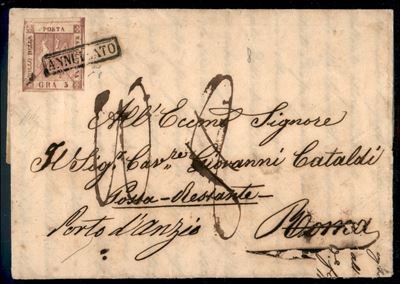 POSTA
BOLLO DELLA
GRA 5
ANNULLATO
8
All'Eccmo Signore
Il Sigr. Cavre. Giovanni Cataldi
Posta-Restante
Porto d'Anzio Roma